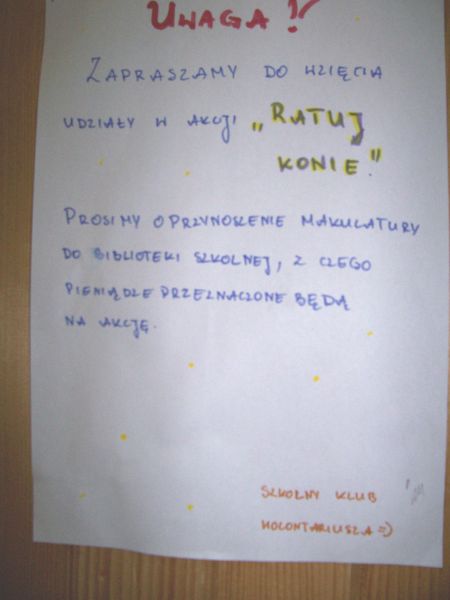 UWAGA!
ZAPRASZAMY DO WZIĘCIA
UDZIAŁY W AKCJI „RATUJ
KONIE!"
PROSIMY O PRZYNOSZENIE MAKULATURY
DO BIBLIOTEKI SZKOLNEJ, Z CZEGO
PIENIĄDZE PRZEZNACZONE BĘDĄ
NA AKCJĘ.
SZKOLNY KLUB
WOLONTARIUSZA =)